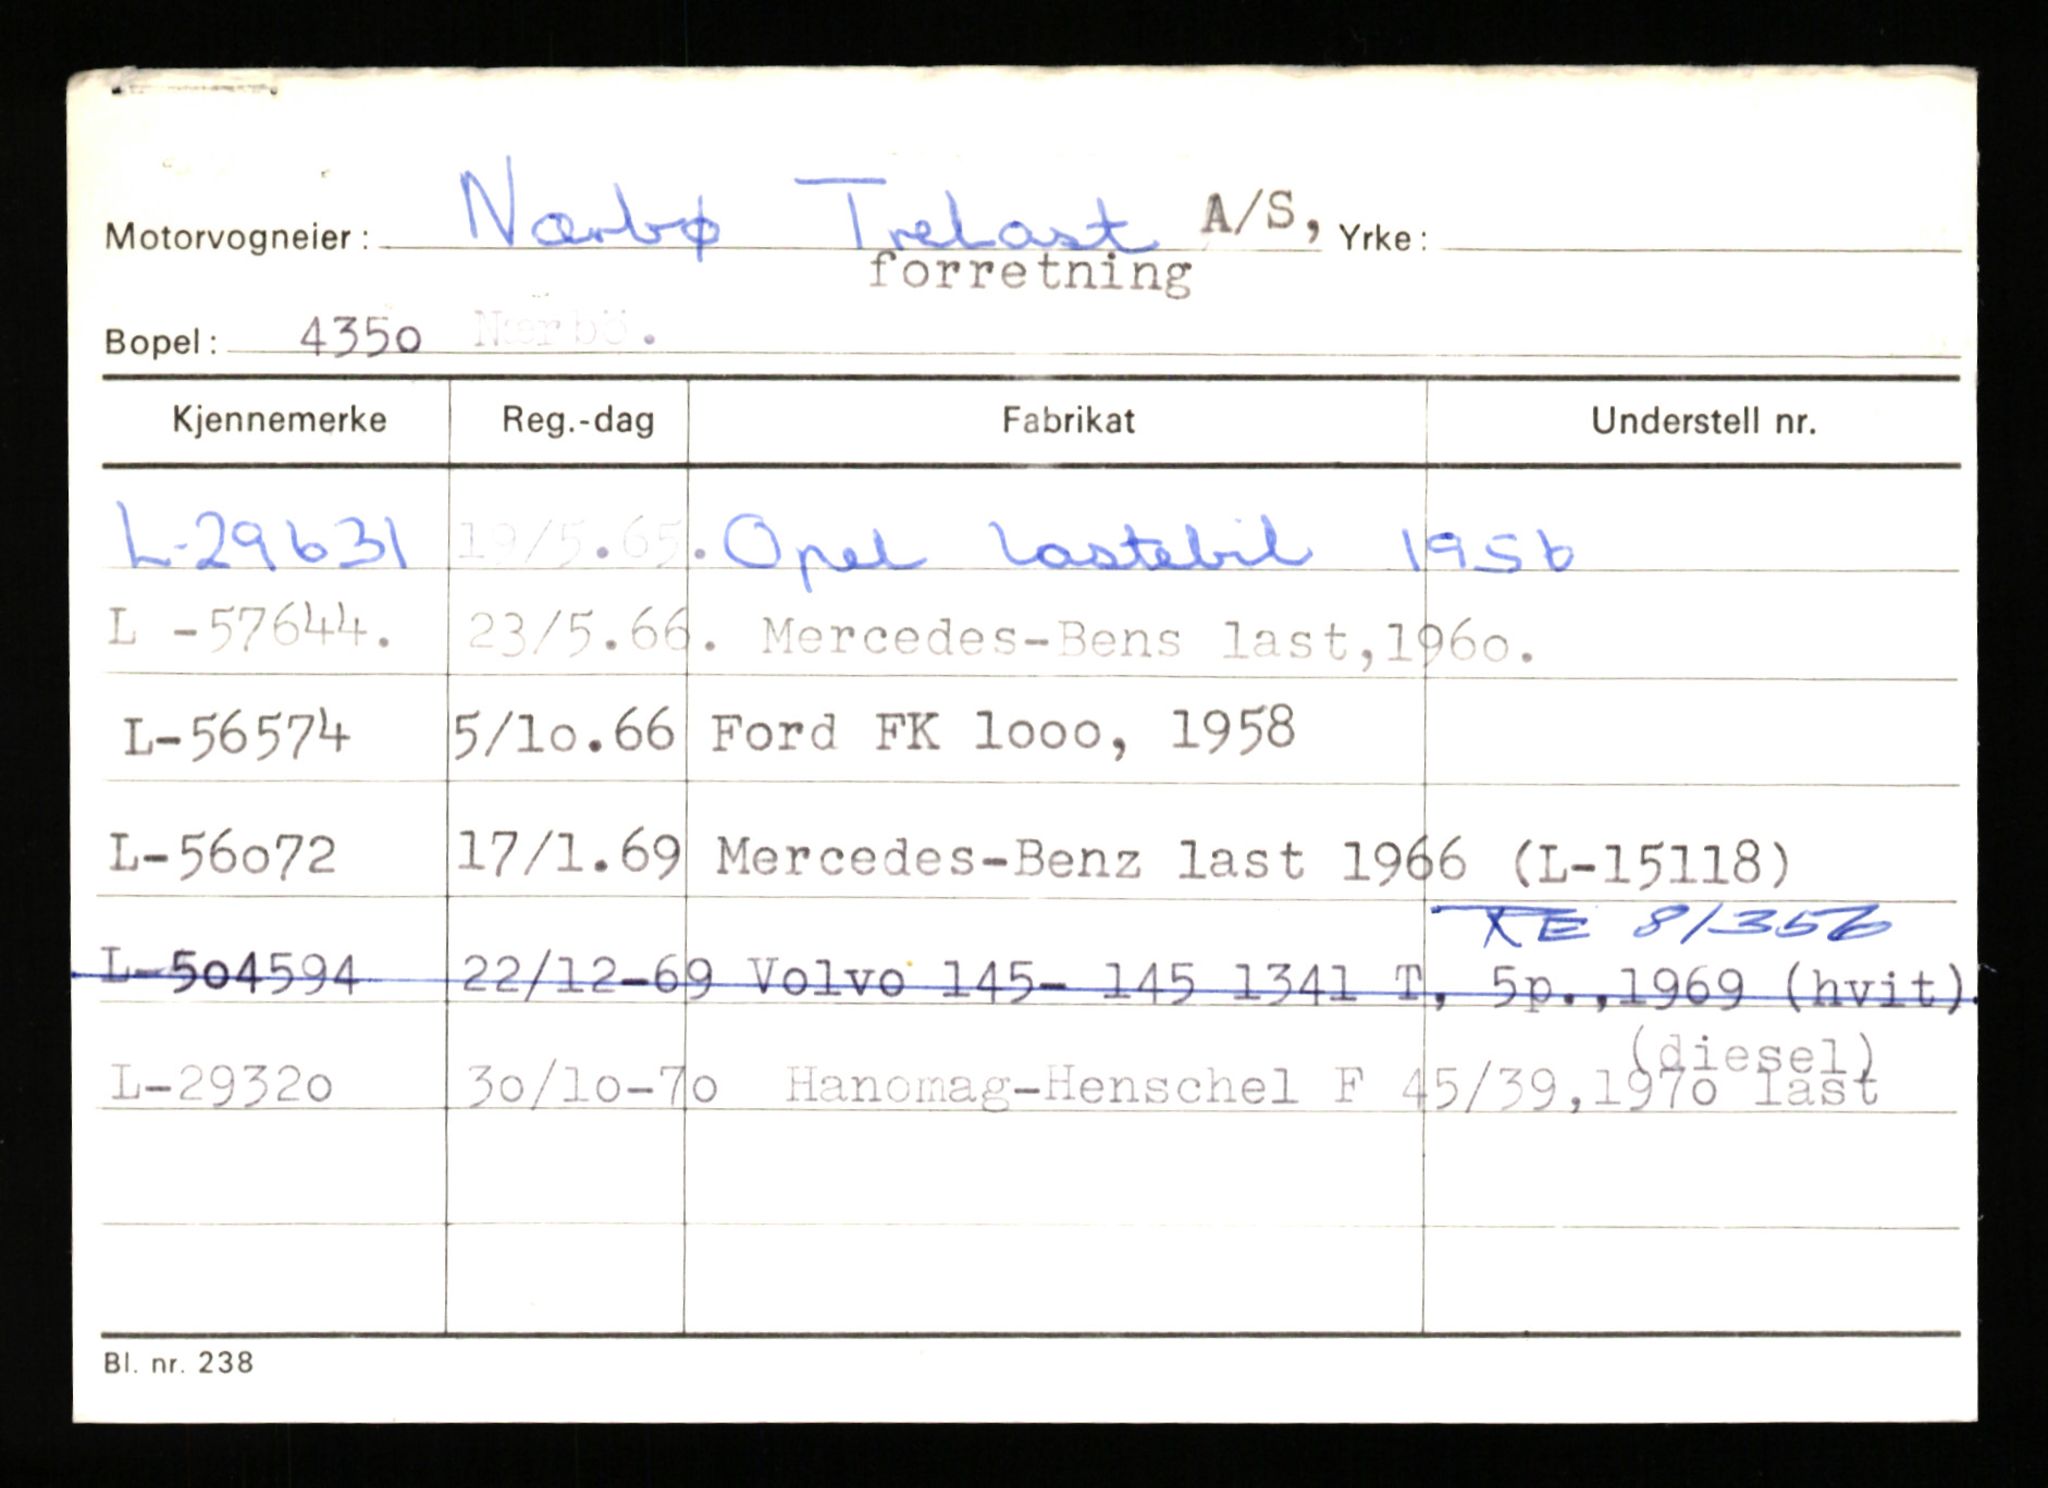 Motorvogneier: Nærbø Trelast A/S, Yrke:
forretning
Bopel: 4350 Nærbö.
Kjennemerke Reg.-dag Fabrikat Understell nr.
L-29631 19/5.65. Opel lastebil 1956
L -57644. 23/5.66. Mercedes-Bens last,196o.
L-56574 5/1o.66 Ford FK 1ooo, 1958
L-56o72 17/1.69 Mercedes-Benz last 1966 (L-15118)
KE 81356
L-5o4594 22/12-69 Volvo 145- 145 1341 T, 5p.,1969 (hvit).
(diesel)
L-2932o 3o/1o-7o Hanomag-Henschel F 45/39,197o last
Bl. nr. 238